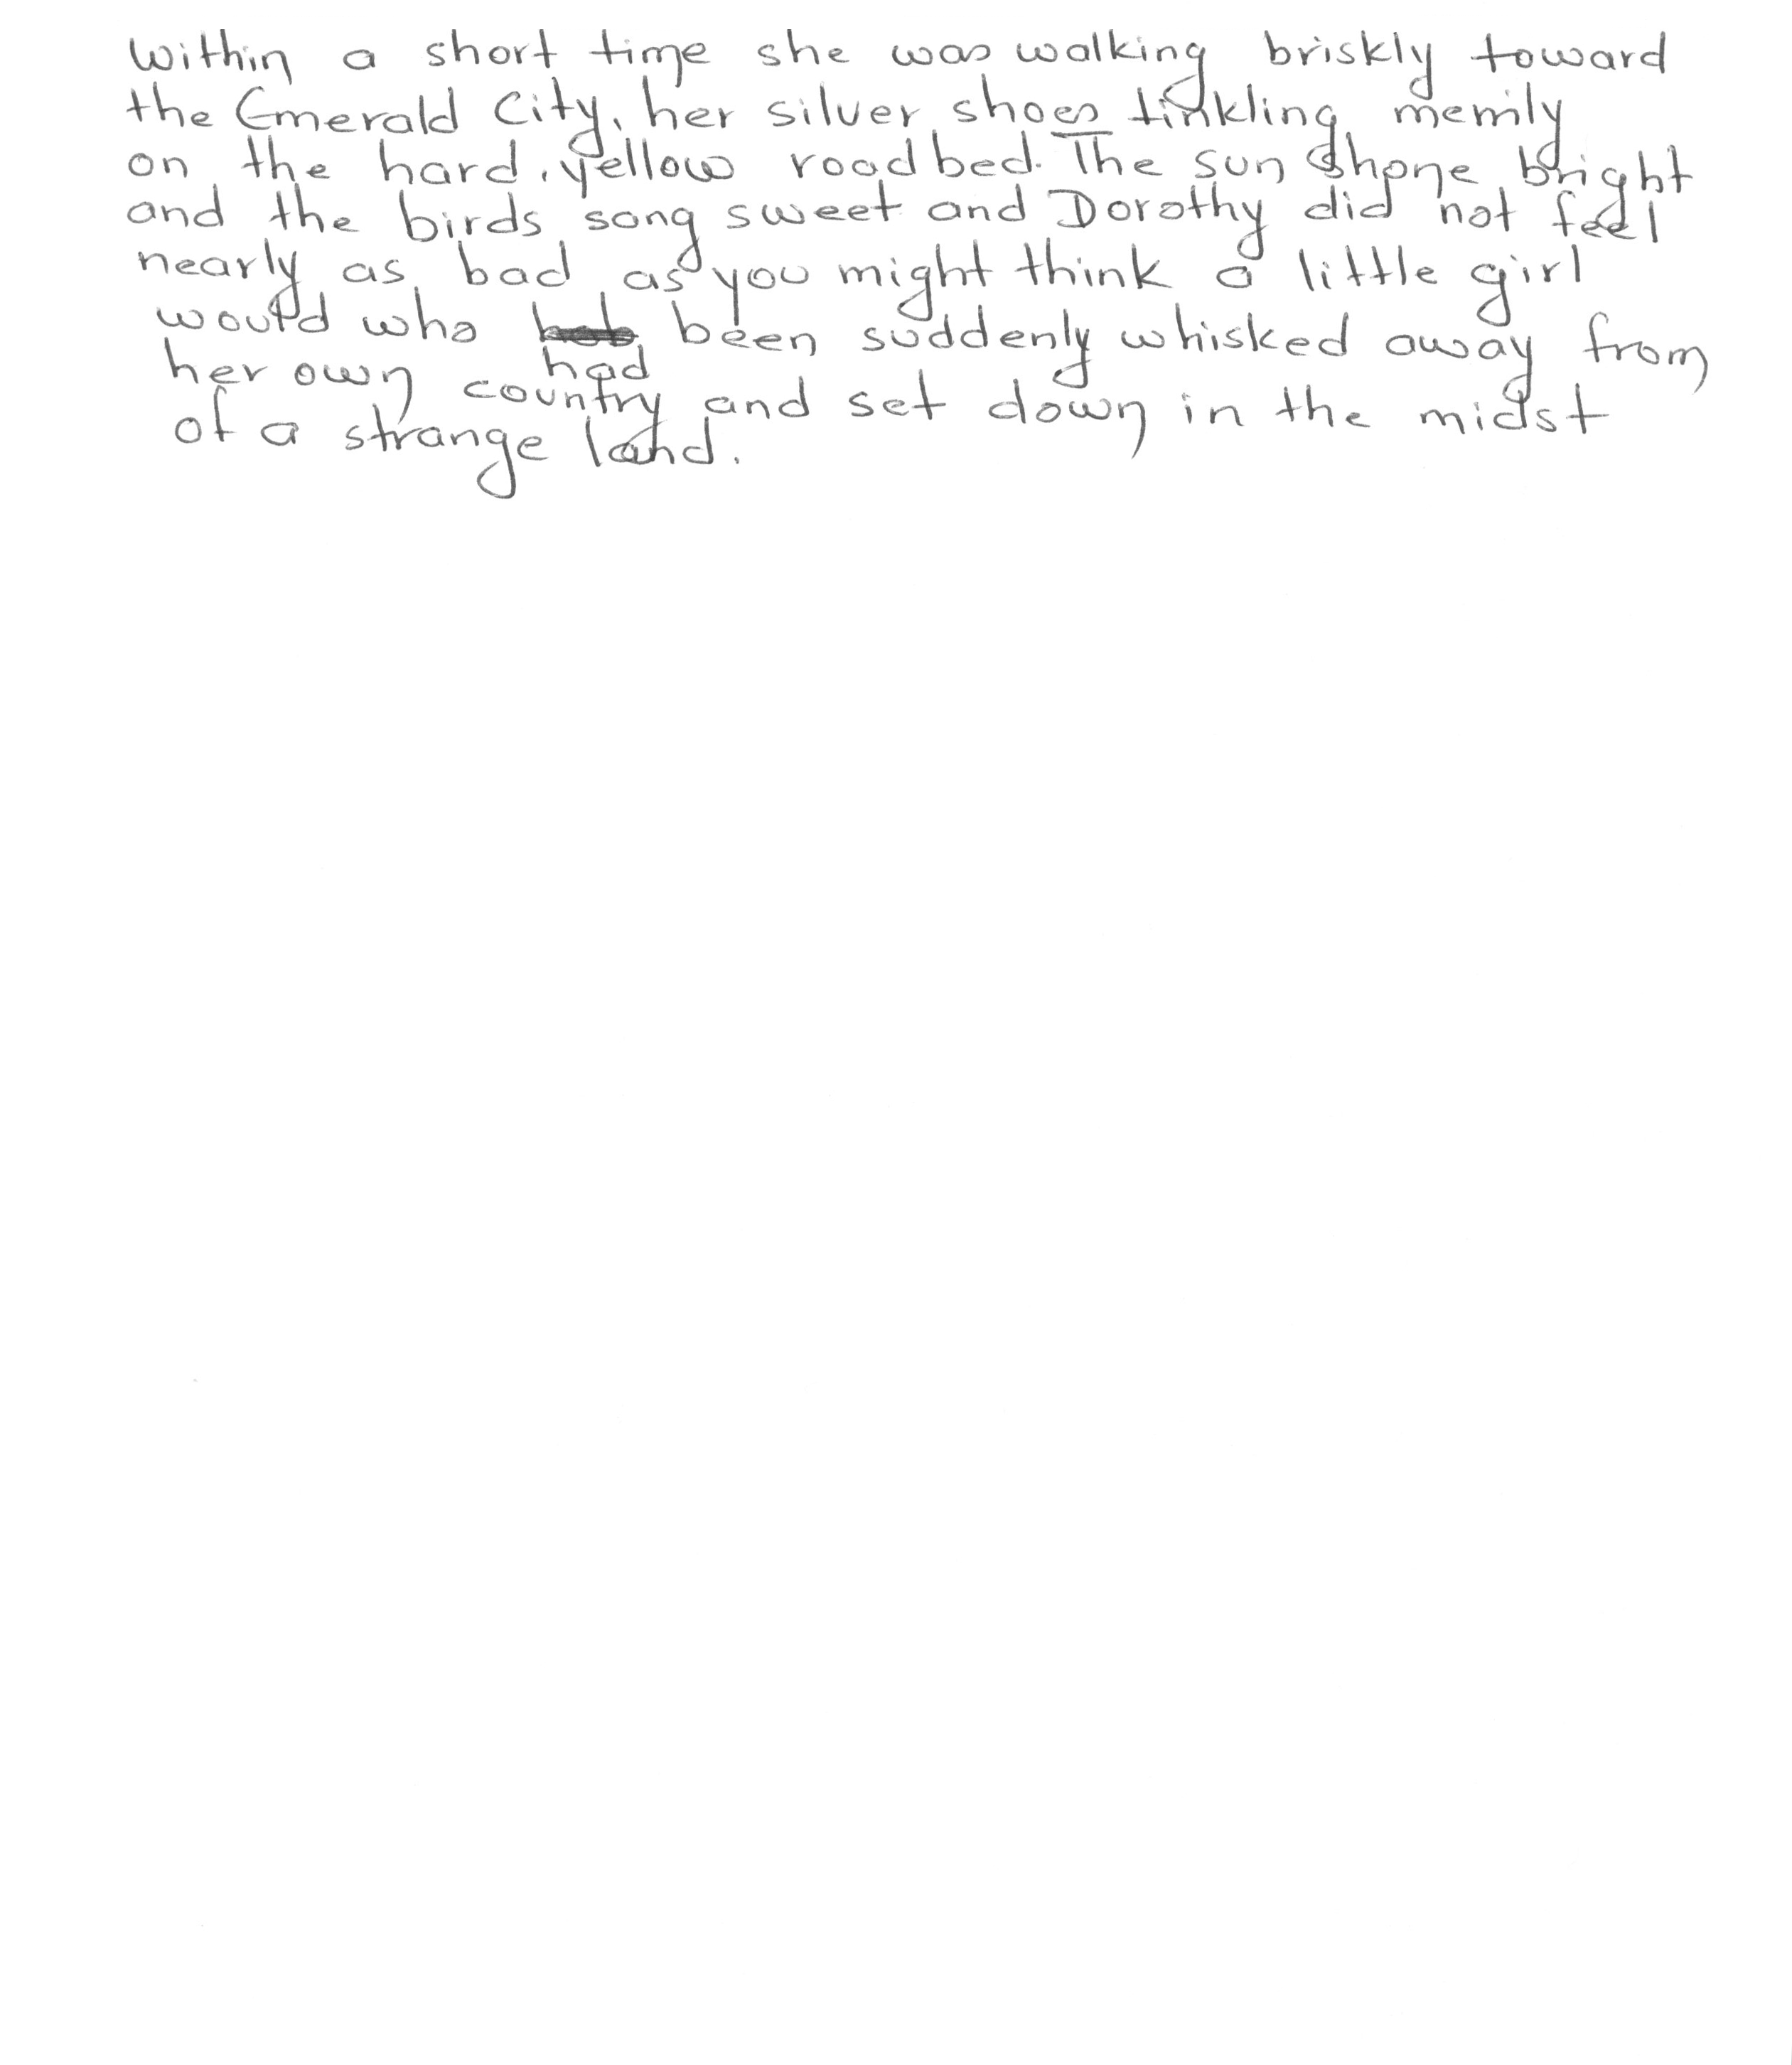 Within a short time she was walking briskly toward
the Emerald City, her silver shoes tinkling merrily
on the hard, yellow roadbed. The sun shone bright
and the birds song sweet and Dorothy did not feel
nearly as bad as you might think a little girl
would who had been suddenly whisked away from
her own country and set down in the midst
of a strange land.